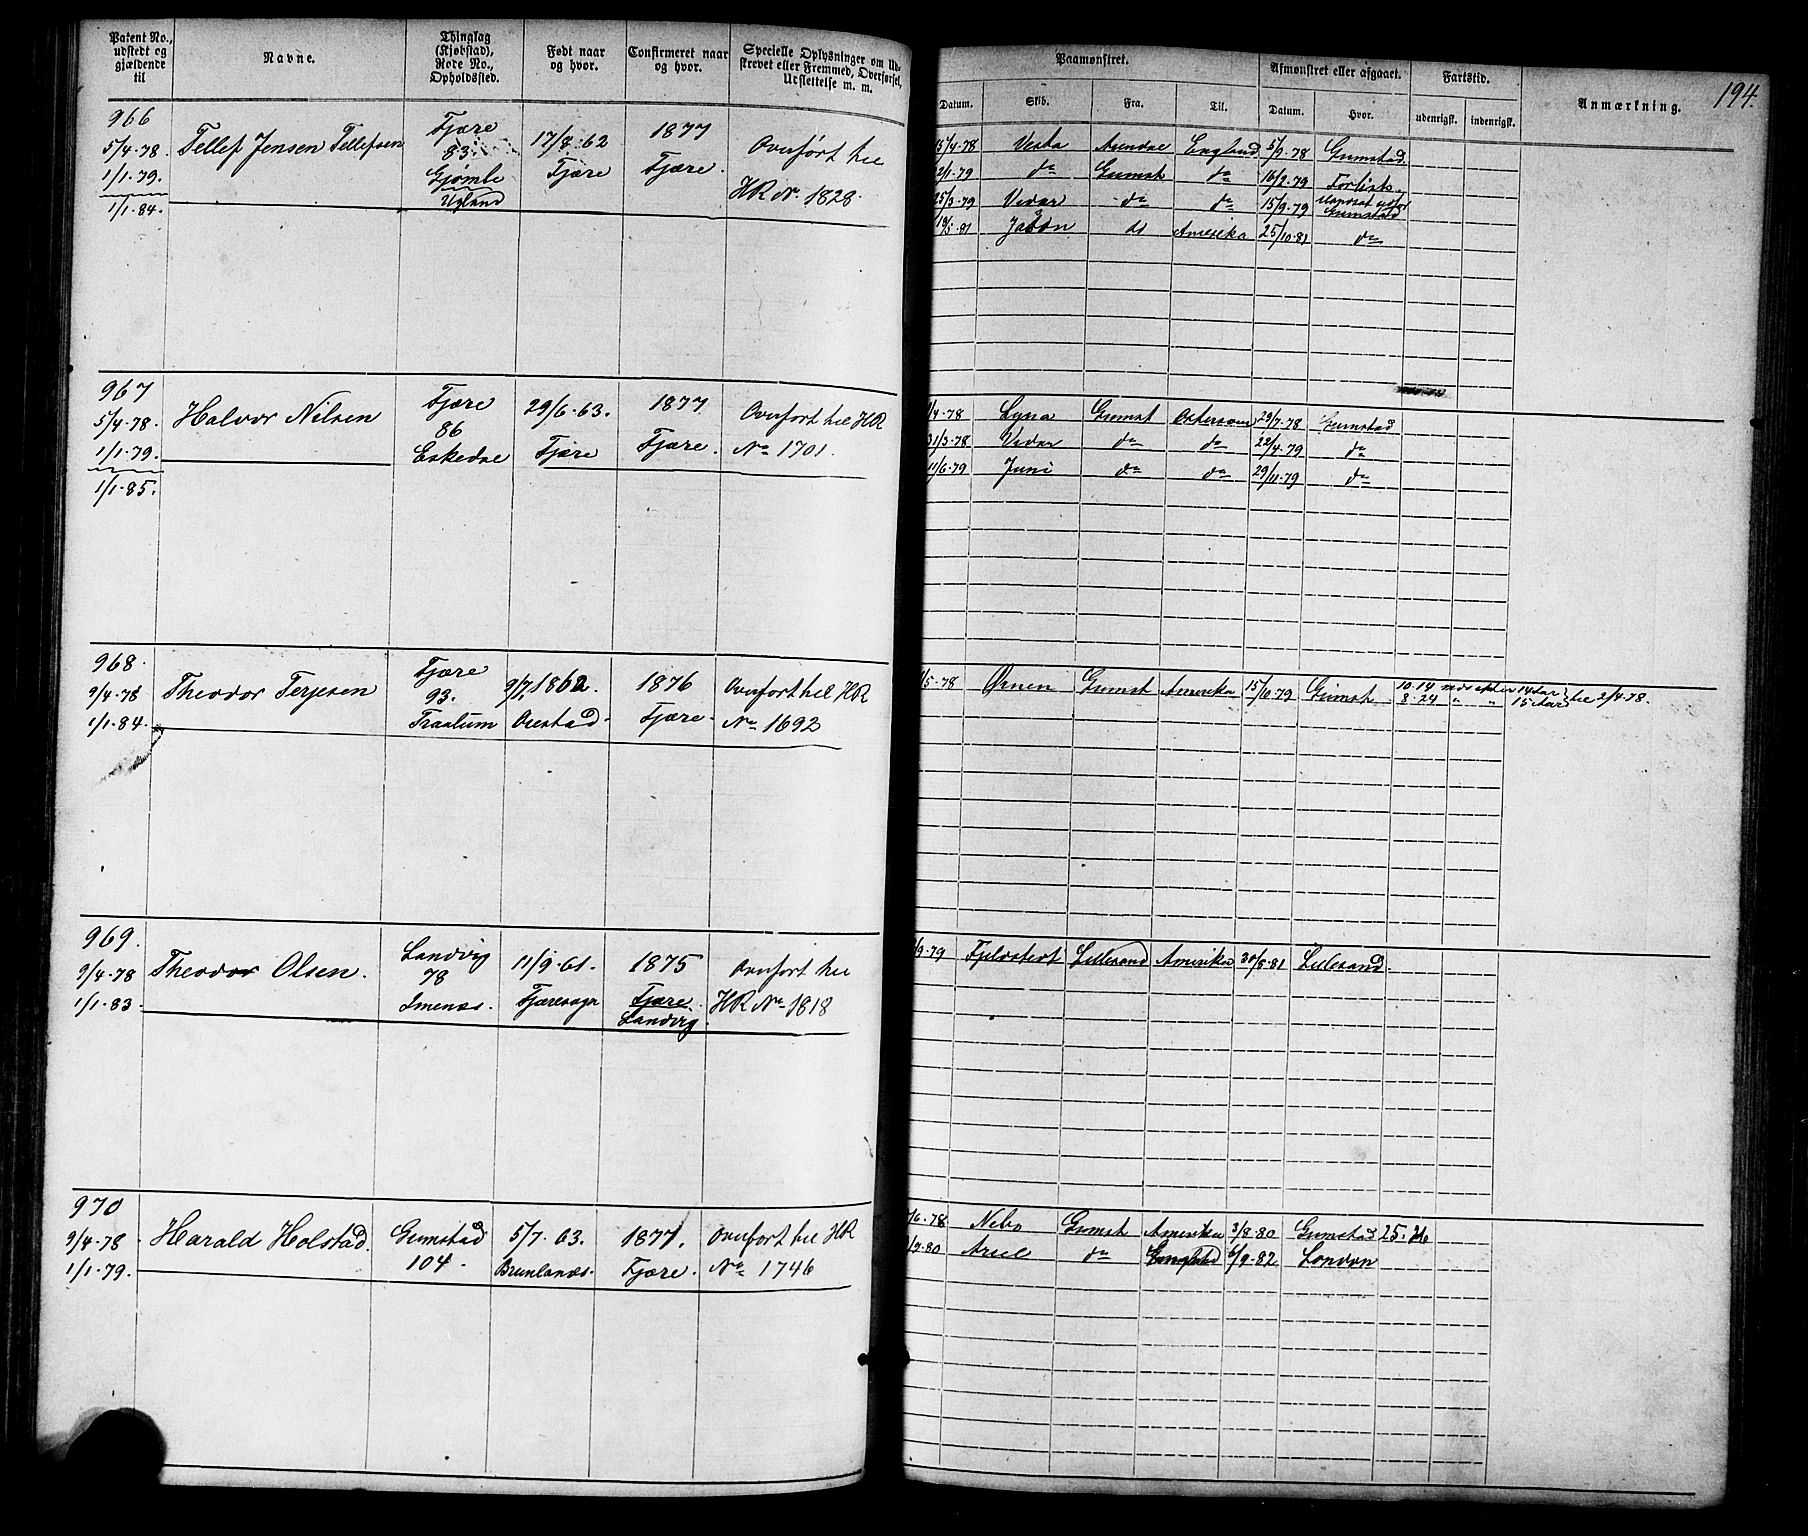 Patent No., udstedt og gjældende til
Navne.
Thinglag (Kjøbstad), Rode No., Opholdssted.
Født naar og hvor.
Confirmeret naar og hvor.
Specielle Oplysninger om Udskrevet eller Fremmed, Overførsel, Udslettelse m. m.
Paamønstret.
Afmønstret eller afgaaet.
Fartstid.
Anmærkning.
194.
Datum.
Skib.
Fra.
Til.
Datum.
Hvor.
udenrigsk.
indenrigsk.
966
5/4-78.
1/1.79.
1/1.84.
Tellef Jensen Tellefsen
Fjære
83.
Gjømle
Ugland
17/8.62
Fjære
1877
Fjære.
Overført til
HR No. 1828.
15/4-78 Vesta Arendal England 5/9-78 Grimstad.
2/1-79 do Grimst do 16/2-79 Forlist
25/3-79 Vidar do do 15/9-79 Grimstad
19/5-81 Jason do Amerika 25/10-81 do
967
5/4-78.
1/1.79.
1/1.85.
Halvor Nilsen
Fjære
86
Eskedal
29/6.63.
Fjære
1877
Fjære.
Overført til HR
No 1701.
/4-78 Lyna Grimst Østersøen 29/7-78 Grimstad
31/3-78 Vidar do do 22/4-79 do
11/6-79 Juni do do 29/11-79 do
968.
9/4-78
1/1-84.
Theodor Terjesen
Fjære
93.
Traalum
9/7.1862.
Øiestad.
1876
Fjære.
Overført til HR
No 1692
/5-78 Ørnen Grimst Amerika 15/10-79 Grimst 10.14 mdr efter 14 Aar til 2/4-78.
8.24 " " 15 Aar
969.
9/4-78
1/1-83.
Theodor Olsen.
Landvig
78
Imenæs.
11/9-61.
Fjæresogn
1875
Fjære
Landvig.
Overført til
HR No 1818
/9-79 Fjeldstedt Lillesand Amerika 30/8-81 Lillesand.
970
9/4-78
1/1-79.
Harald Holstad.
Grimstad
104.
5/7.63.
Brunlanæs.
1877.
Fjære.
Overført til HR
No 1746
/6-78 Nebo Grimst Amerika 3/8-80 Grimstad 25.26
/9-80 Ariel do England 6/9-82 London